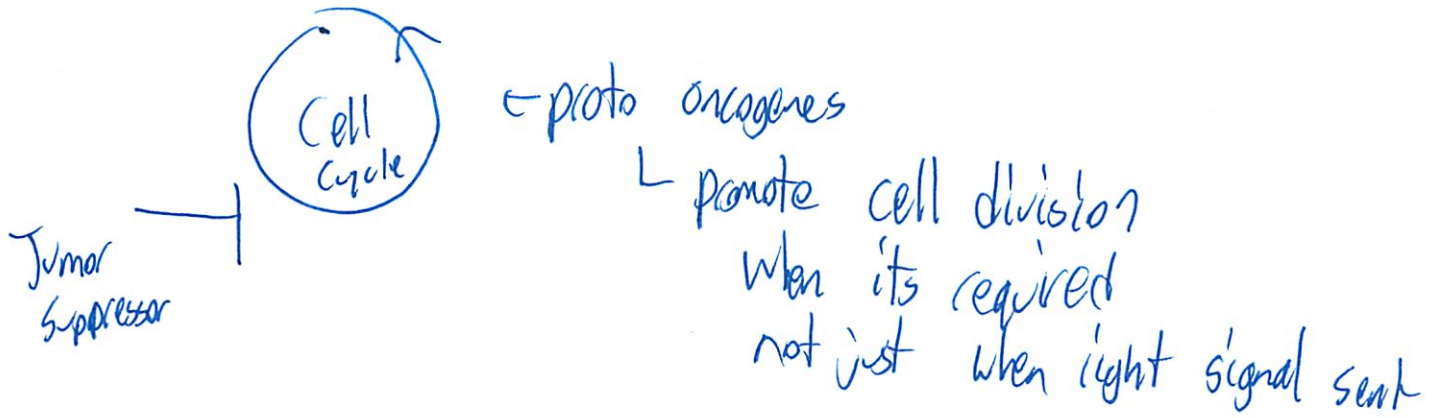 Cell
Cycle
← proto oncogenes
promote cell division
when its required
not just when right signal sent
Tumor
suppressor